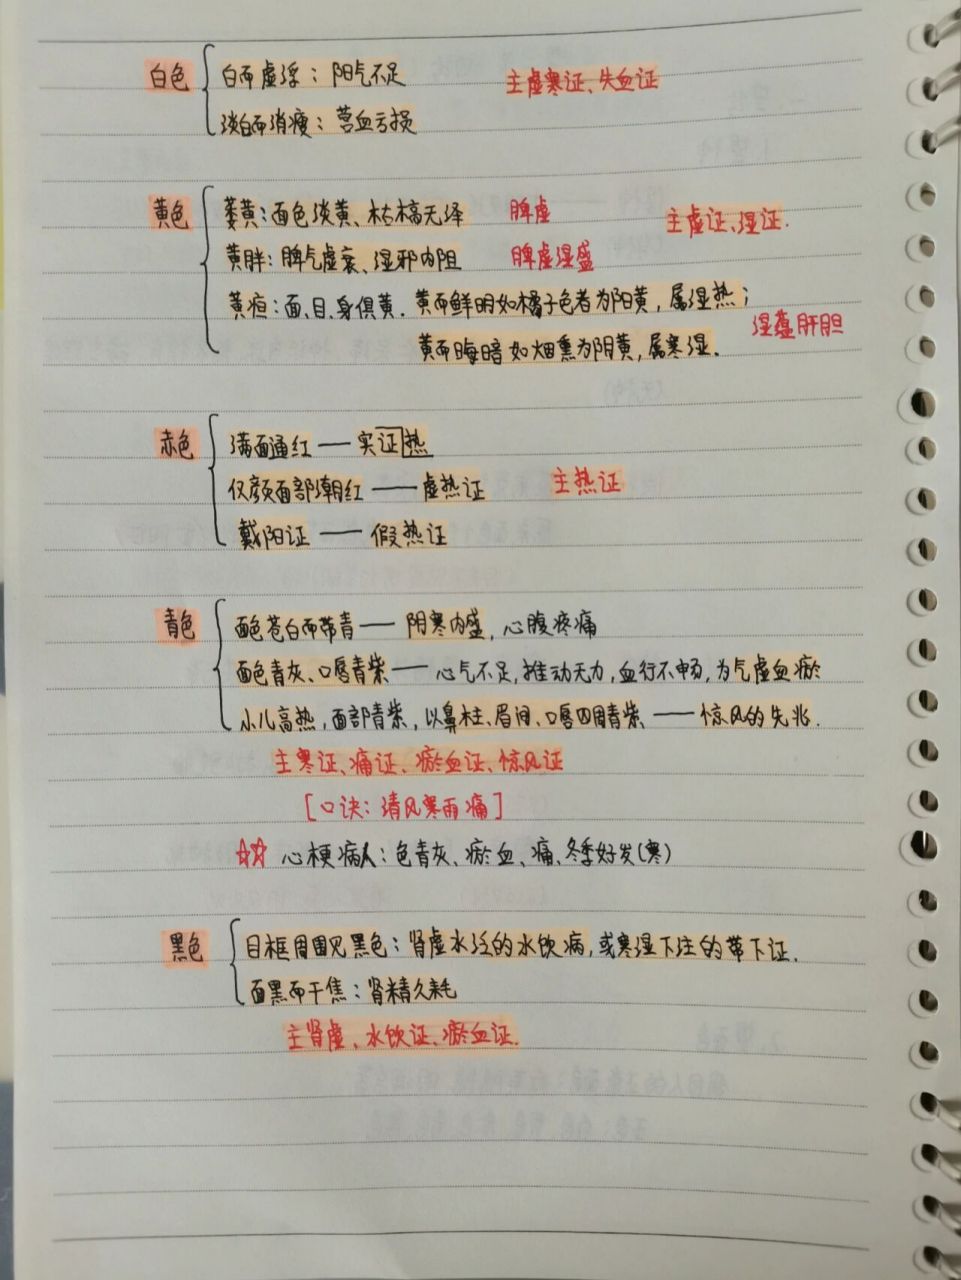 白色 白而虚浮：阳气不足 主虚寒证、失血证
淡白而消瘦：营血亏损
黄色 萎黄：面色淡黄、枯槁无泽 脾虚 主虚证、湿证.
黄胖：脾气虚衰、湿邪内阻 脾虚湿盛
黄疸：面、目、身俱黄. 黄而鲜明如橘子色者为阳黄，属湿热；
湿蕴肝胆
黄而晦暗如烟熏为阴黄，属寒湿.
赤色 满面通红——实证热
仅颜面部潮红——虚热证 主热证
戴阳证——假热证
青色 面色苍白而带青——阴寒内盛，心腹疼痛
面色青灰、口唇青紫——心气不足，推动无力，血行不畅，为气虚血瘀
小儿高热，面部青紫，以鼻柱、眉间、口唇四周青紫——惊风的先兆.
主寒证、痛证、瘀血证、惊风证
[口诀：清风寒雨痛]
☆☆ 心梗病人：色青灰、瘀血、痛、冬季好发(寒)
黑色 目框周围见黑色：肾虚水泛的水饮病，或寒湿下注的带下证.
面黑而干焦：肾精久耗
主肾虚、水饮证、瘀血证.